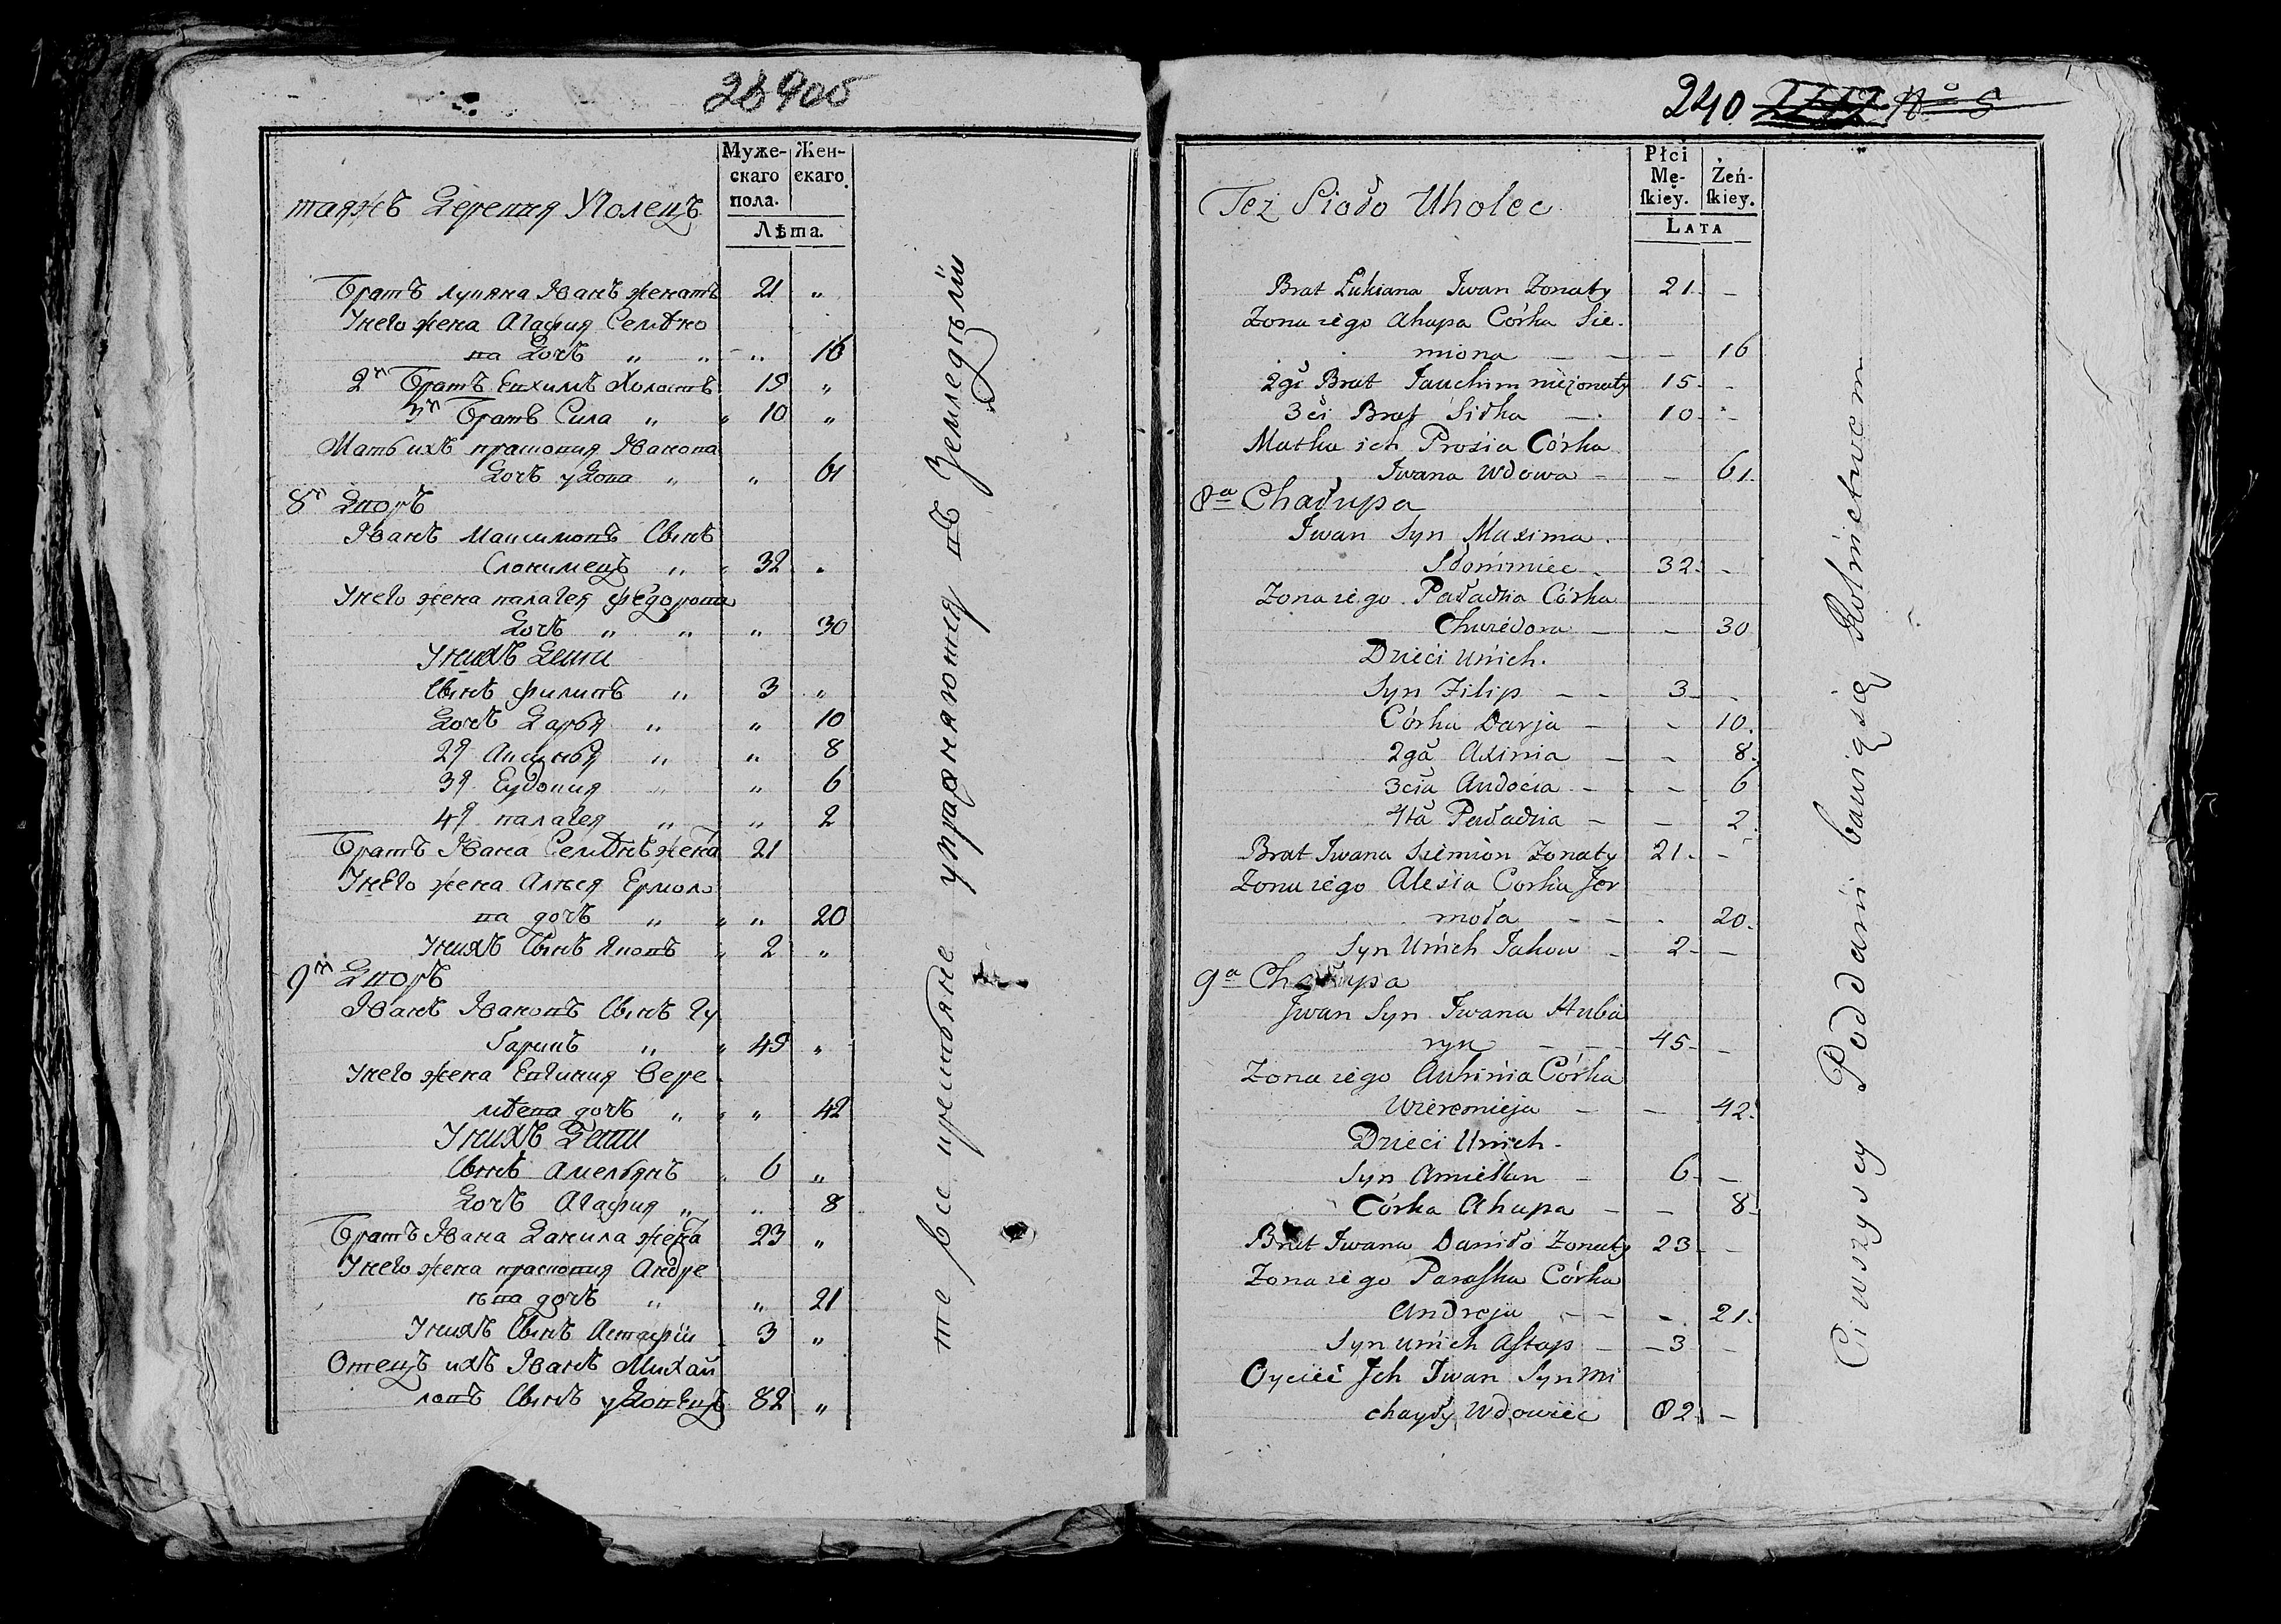 таяжъ Деревня Уголецъ
Муже-
скаго
пола.
Жен-
скаго
Лѣта.
Братъ Лукяна Иванъ женатъ 21 "
У него жена Агафия Семено
ва дочь " " " 16
2й Братъ Евхимъ Холостъ 15 "
3й Братъ Сила " " 10 "
Мать ихъ прасковия Иванова
Дочь удова " " 61
8й Дворъ
Иванъ Максимовъ Сынъ
Слонимецъ " " 32 "
У него жена палагея федорова
Дочь " " " 30
У нихъ Дети
Сынъ филипъ " 3 "
Дочь Дарья " " 10
2я Аксинья " " 8
3я Еудокия " " 6
4я палагея " " 2
Братъ Ивана Семенъ жена 21
У него жена Алеся Ермоло
ва дочь " " " 20
У нихъ Сынъ Яковъ " 2 "
9й Дворъ
Иванъ Ивановъ Сынъ Гу
баринъ " " 45 "
У него жена Евгиния Вере
меева дочь " " " 42
У нихъ Дети
Сынъ Амельянъ " 6 "
Дочь Агафия " " 8
Братъ Ивана Данила жена 23 "
У него жена прасковия Андре
ева дочь " " 21
У нихъ Сынъ Астафiй 3 "
Отецъ ихъ Иванъ Михай
ловъ Сынъ удовецъ 82 "
те все крестьяне упражняются въ Земледелiи
240 N° 5
Też Sioło Uholec
Płci
Mę-
skiey.
Żeń-
skiey.
LATA
Brat Łukiana Iwan Zonaty 21 -
Zona iego Ahapa Córka Sie-
miona - - - 16
2gi Brat Jauchim nieżonaty 15 -
3ci Brat Siłka - 10 -
Matka ich Prosia Córka
Iwana Wdowa - - 61
8a Chałupa
Iwan Syn Maxima
Słonimiec - 32 -
Zona iego Pałachia Córka
Chwiedora - - 30
Dzieci Unich.
Syn Filip - - 3 -
Córka Darja - - 10
2ga Axinia - - 8
3cia Audocia - - 6
4ta Pałachia - - 2
Brat Iwana Siemion Zonaty 21 -
Zona iego Alesia Corka Jer
moła - - - 20
Syn Unich Jakow - 2 -
9a Chałupa
Iwan Syn Iwana Huba
ryn - - - 45 -
Zona iego Auhinia Córka
Wieremieja - - 42
Dzieci Unich -
Syn Amiellan - 6 -
Córka Ahapa - - 8
Brat Iwana Daniło Zonaty 23 -
Zona iego Paraska Córka
Andreja - - - 21
Syn unich Astap - - 3 -
Oyciec Ich Iwan Syn Mi
chayły Wdowiec 82 -
Ci wszyscy Poddani bawią się Rolnictwem